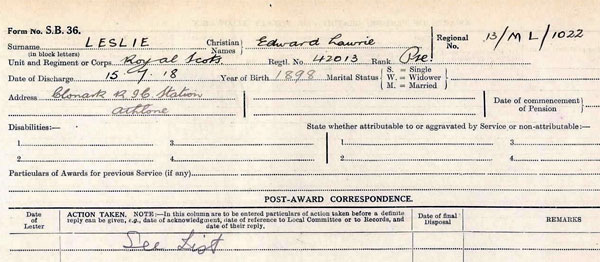 Form No. S.B. 36.
Surname LESLIE Christian Names Edward Lawrie Regional No. 13/ML/1022
(in block letters)
Unit and Regiment or Corps Royal Scots Regtl. No. 42013 Rank Pte.
Date of Discharge 15.7.18 Year of Birth 1898 Marital Status S. = Single W. = Widower M. = Married
Address Clonark R.I.C. Station
Athlone
Date of commencement of Pension
Disabilities:— State whether attributable to or aggravated by Service or non-attributable:—
1 3 1 3
2 4 2 4
Particulars of Awards for previous Service (if any)
POST-AWARD CORRESPONDENCE.
Date of Letter
ACTION TAKEN. NOTE:—In this column are to be entered particulars of action taken before a definite
reply can be given, e.g., date of acknowledgment, date of reference to Local Committee or to Records, and
date of their reply.
Date of final Disposal
REMARKS
See List